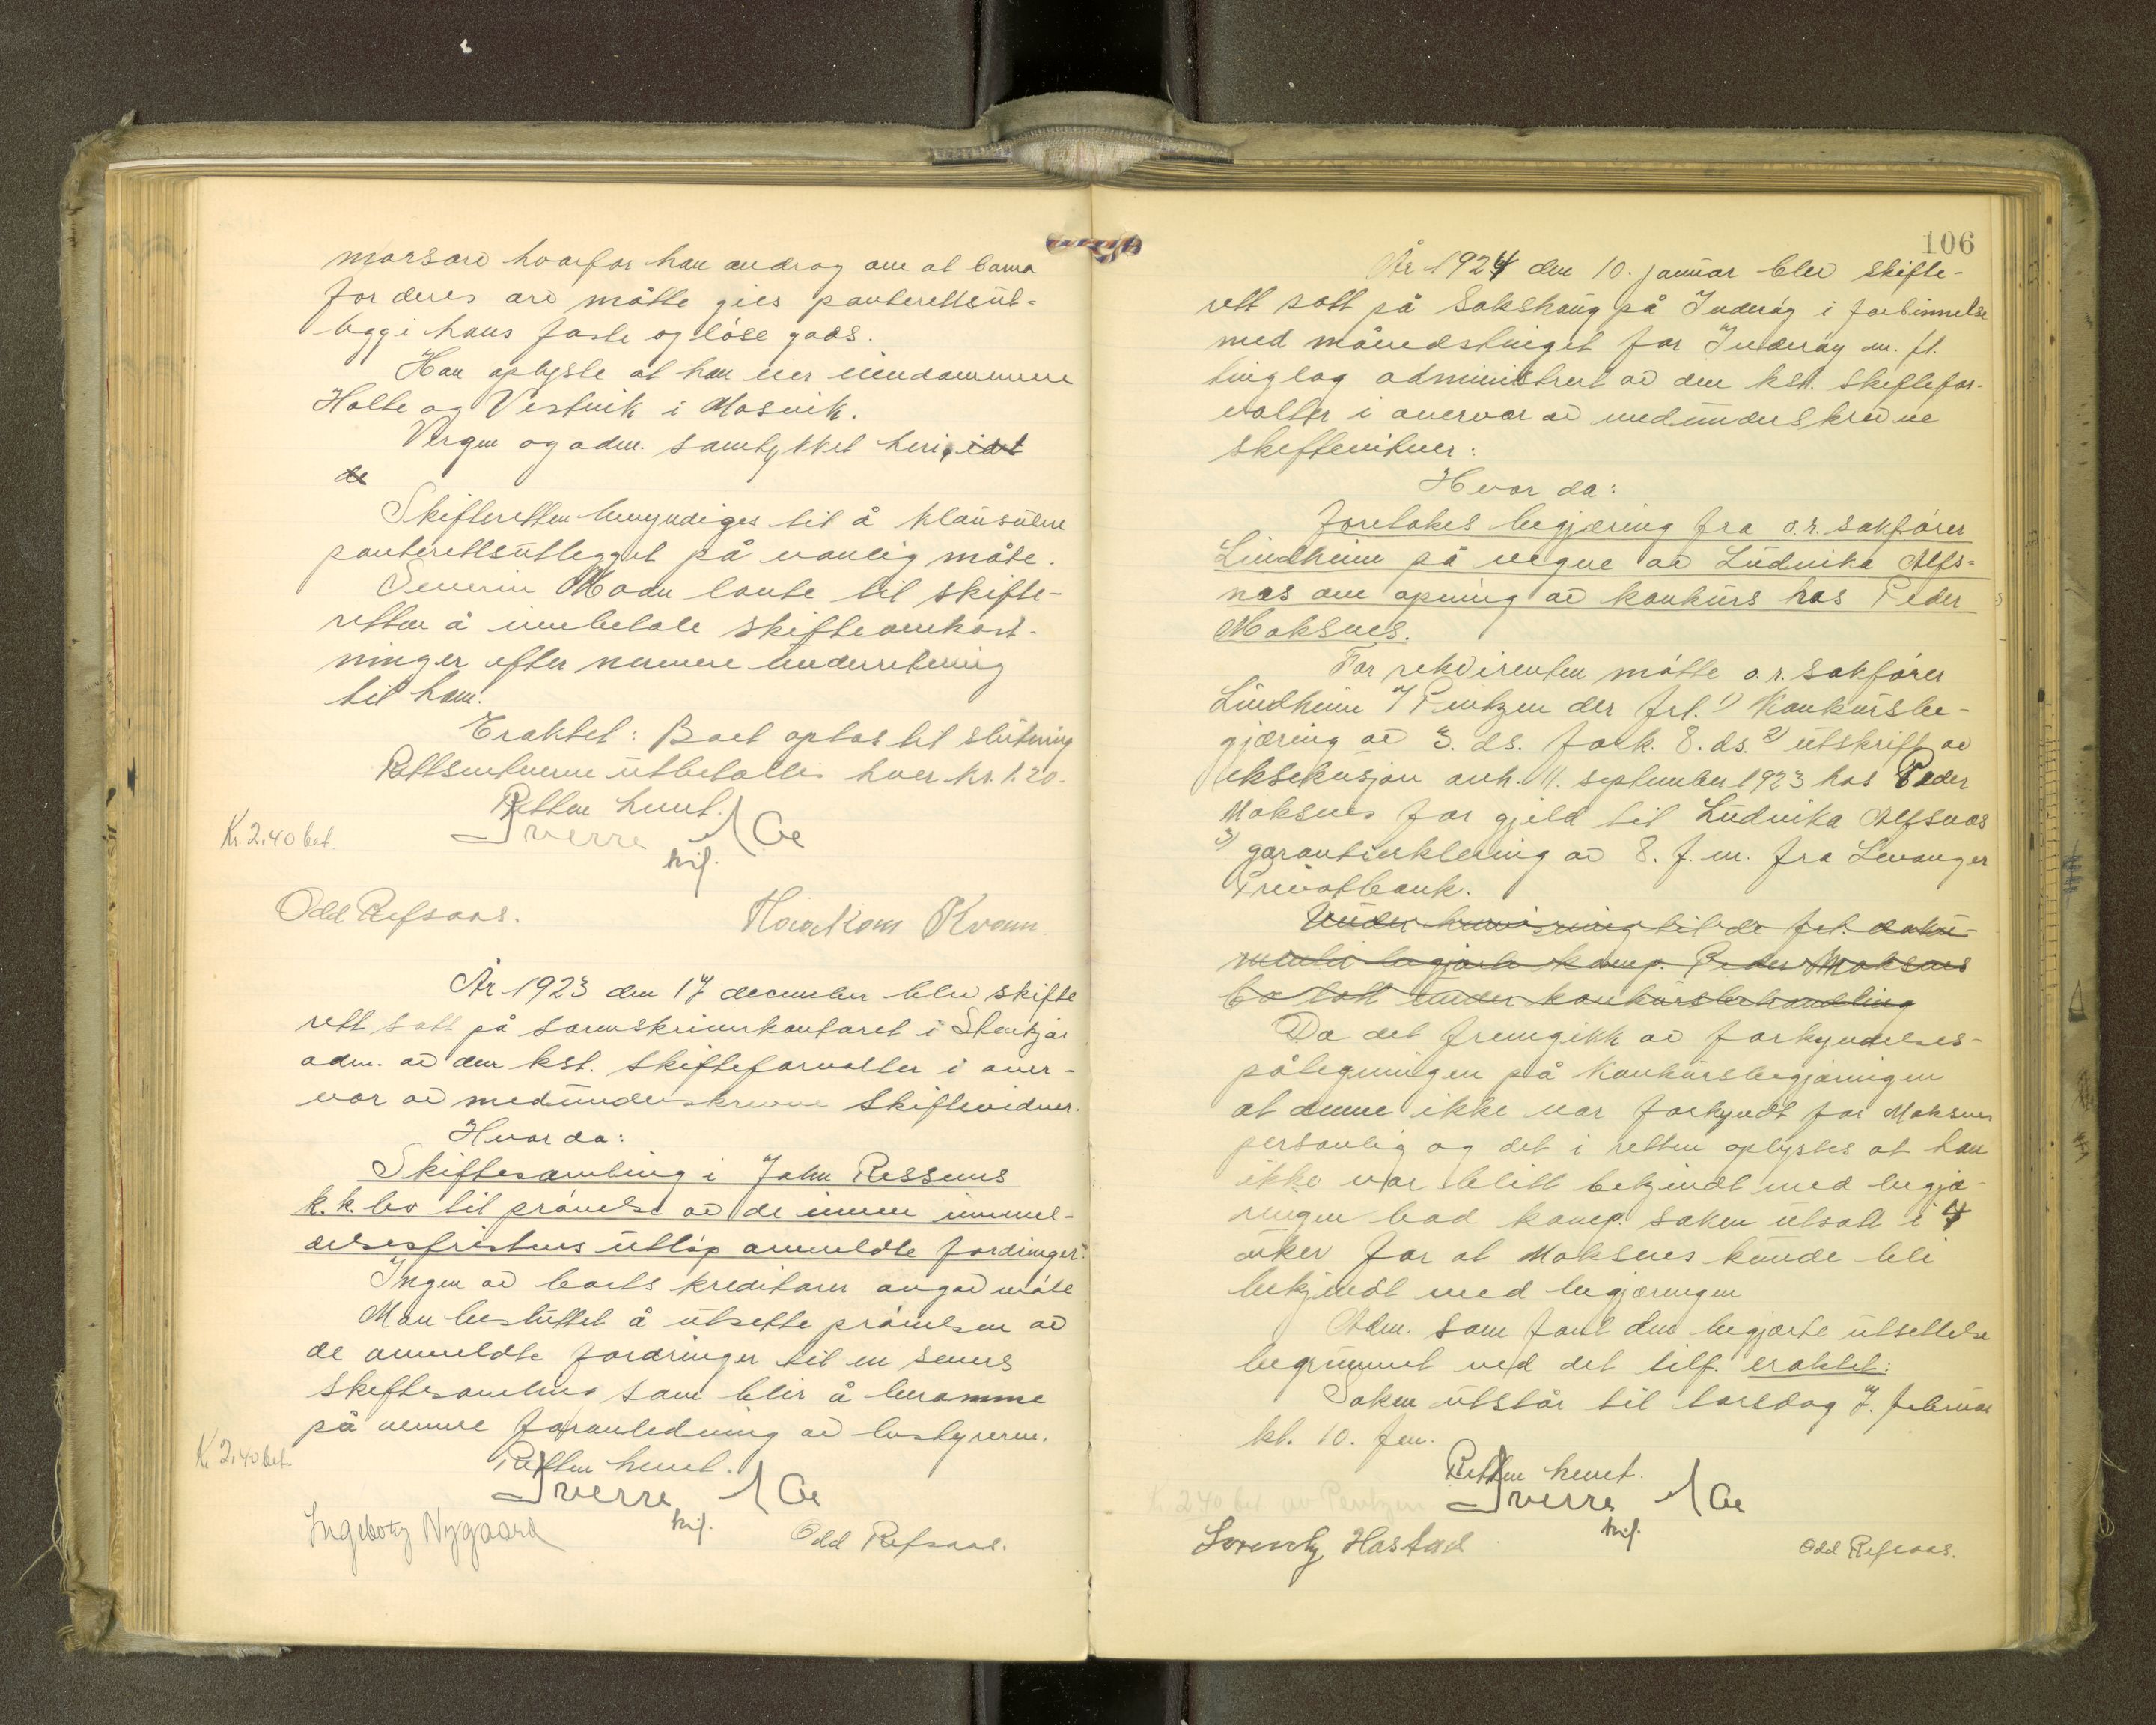 morsarv hvorfor han androg om at barna
for deres arv måtte gies panterettsut-
legg i hans faste og løse gods.
Han oplyste at han eier eiendommene
Holte og Vestvik i Mosvik.
Vergen og adm. samtykket heri, idet
de
Skifteretten bemyndiges til å klausulere
panterettsutlegget på vanlig måte.
Severin Moan lovte til skifte-
retten å innbetale skifteomkost-
ninger efter nærmere underretning
til ham.
Eraktet: Boet optas til slutning
Rettsvitnerne utbetaltes hver kr. 1.20.
Retten hevet.
Kr. 2.40 bet.
Sverre
kst.
Odd Refsaas.
Haakon Kvam.
År 1923 den 17 december blev skifte
rett satt på sorenskriverkontoret i Steinkjær
adm. av den kst. skifteforvalter i over-
vær av medunderskrevne skiftevidner.
Hvor da:
Skiftesamling i John Ressems
k.k. bo til prøvelse av de innen innmel-
delsesfristens utløp anmeldte fordringer.
Ingen av boets kreditorer avgav møte
Man besluttet å utsette prøvelsen av
de anmeldte fordringer til en senere
skiftesamling som blir å beramme
på nærmere foranledning av bestyreren.
Retten hevet.
K. 2.40 bet.
Sverre
kst.
Ingeborg Nygaard
Odd Refsaas.
106
År 1924 den 10. januar blev skifte-
rett satt på Sakshaug på Inderøy i forbinnelse
med månedstinget for Inderøy m. fl.
tinglag administrert av den kst. skiftefor-
valter i overvær av medunderskrevne
skiftevitner:
Hvor da:
Foretokes begjæring fra o.r. sakfører
Lindheim på vegne av Ludvika Alfs-
nes om åpning av konkurs hos Peder
Moksnes.
For rekvirenten møtte o.r. sakfører
Lindheim v/ Pentzen der frl. 1) Konkursbe-
gjæring av 3. ds. fork. 8. ds. 2) utskrift av
eksekusjon avh. 11. september 1923 hos Peder
Moksnes for gjeld til Ludvika Alfsnes
3) garantierklæring av 8. f. m. fra Levanger
Privatbank.
Under henvisning til de frl. doku-
menter begjærte komp. Peder Moksnes
bo tatt under konkursbehandling
Da det fremgikk av forkyndelses-
påtegningen på konkursbegjæringen
at denne ikke var forkyndt for Moksnes
personlig og det i retten oplystes at han
ikke var blitt bekjendt med begjæ-
ringen bad komp. saken utsatt i 4
uker for at Moksnes kunde bli
bekjendt med begjæringen
Adm. som fant den begjærte utsettelse
begrunnet ved det tilf. eraktet:
Saken utstår til torsdag 7. februar
kl. 10. fm.
Retten hevet.
Kr. 2.40 bet av Pentzen
Sverre
kst.
Lorentz Hastad
Odd Refsaas.